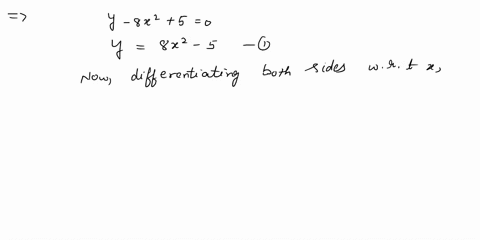 => y - 8x² + 5 = 0
y = 8x² - 5 — ①
Now, differentiating both sides w.r.t x,